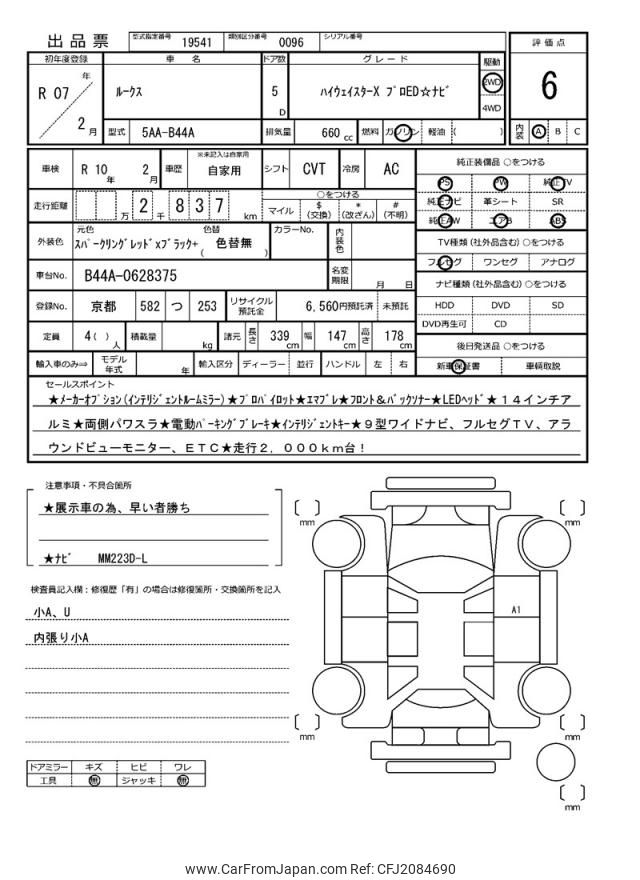 出品票 型式指定番号 19541 類別区分番号 0096 シリアル番号
初年度登録 車名 ドア数 グレード 駆動 評価点
R 07 年 2 月 ﾙｰｸｽ 5 D ﾊｲｳｪｲｽﾀｰX ﾌﾟﾛED☆ﾅﾋﾞ 2WD 4WD 6
型式 5AA-B44A 排気量 660 cc 燃料 ガソリン 軽油 ( ) 内装 A B C
車検 R 10 年 2 月 車歴 ※未記入は自家用 自家用 シフト CVT 冷房 AC 純正装備品 ○をつける
PS PW 純正TV
走行距離 万 2 千 8 3 7 km ○をつける 純正ナビ 革シート SR
マイル $ (交換) * (改ざん) # (不明) 純正AW エアB ABS
外装色 元色 色替 ｽﾊﾟｰｸﾘﾝｸﾞﾚｯﾄﾞxﾌﾞﾗｯｸ+ ( 色替無 ) カラーNo. 内装色 TV種類 (社外品含む) ○をつける
フルセグ ワンセグ アナログ
車台No. B44A-0628375 名変期限 月 日 ナビ種類 (社外品含む) ○をつける
登録No. 京都 582 つ 253 リサイクル預託金 6,560円預託済 未預託 HDD DVD SD
DVD再生可 CD
定員 4( ) 人 積載量 kg 諸元 長さ 339 cm 幅 147 cm 高さ 178 cm 後日発送品 ○をつける
輸入車のみ⇒ モデル年式 年 輸入区分 ディーラー 並行 ハンドル 左 右 新車保証書 車輌取説
セールスポイント
★ﾒｰｶｰｵﾌﾟｼｮﾝ(ｲﾝﾃﾘｼﾞｪﾝﾄﾙｰﾑﾐﾗｰ)★ﾌﾟﾛﾊﾟｲﾛｯﾄ★ｴﾏﾌﾞﾚ★ﾌﾛﾝﾄ&ﾊﾞｯｸｿﾅｰ★LEDﾍｯﾄﾞ★１４インチア
ルミ★両側パワスラ★電動ﾊﾟｰｷﾝｸﾞﾌﾞﾚｰｷ★ｲﾝﾃﾘｼﾞｪﾝﾄｷｰ★９型ワイドナビ、フルセグＴＶ、アラ
ウンドビューモニター、ＥＴＣ★走行２，０００ｋｍ台！
注意事項・不具合箇所
★展示車の為、早い者勝ち
★ﾅﾋﾞ MM223D-L
検査員記入欄：修復歴「有」の場合は修復箇所・交換箇所を記入
小A、U
内張り小A
ドアミラー キズ ヒビ ワレ
工具 無 ジャッキ 無
mm
mm
A1
mm
mm
mm
www.CarFromJapan.com Ref: CFJ2084690